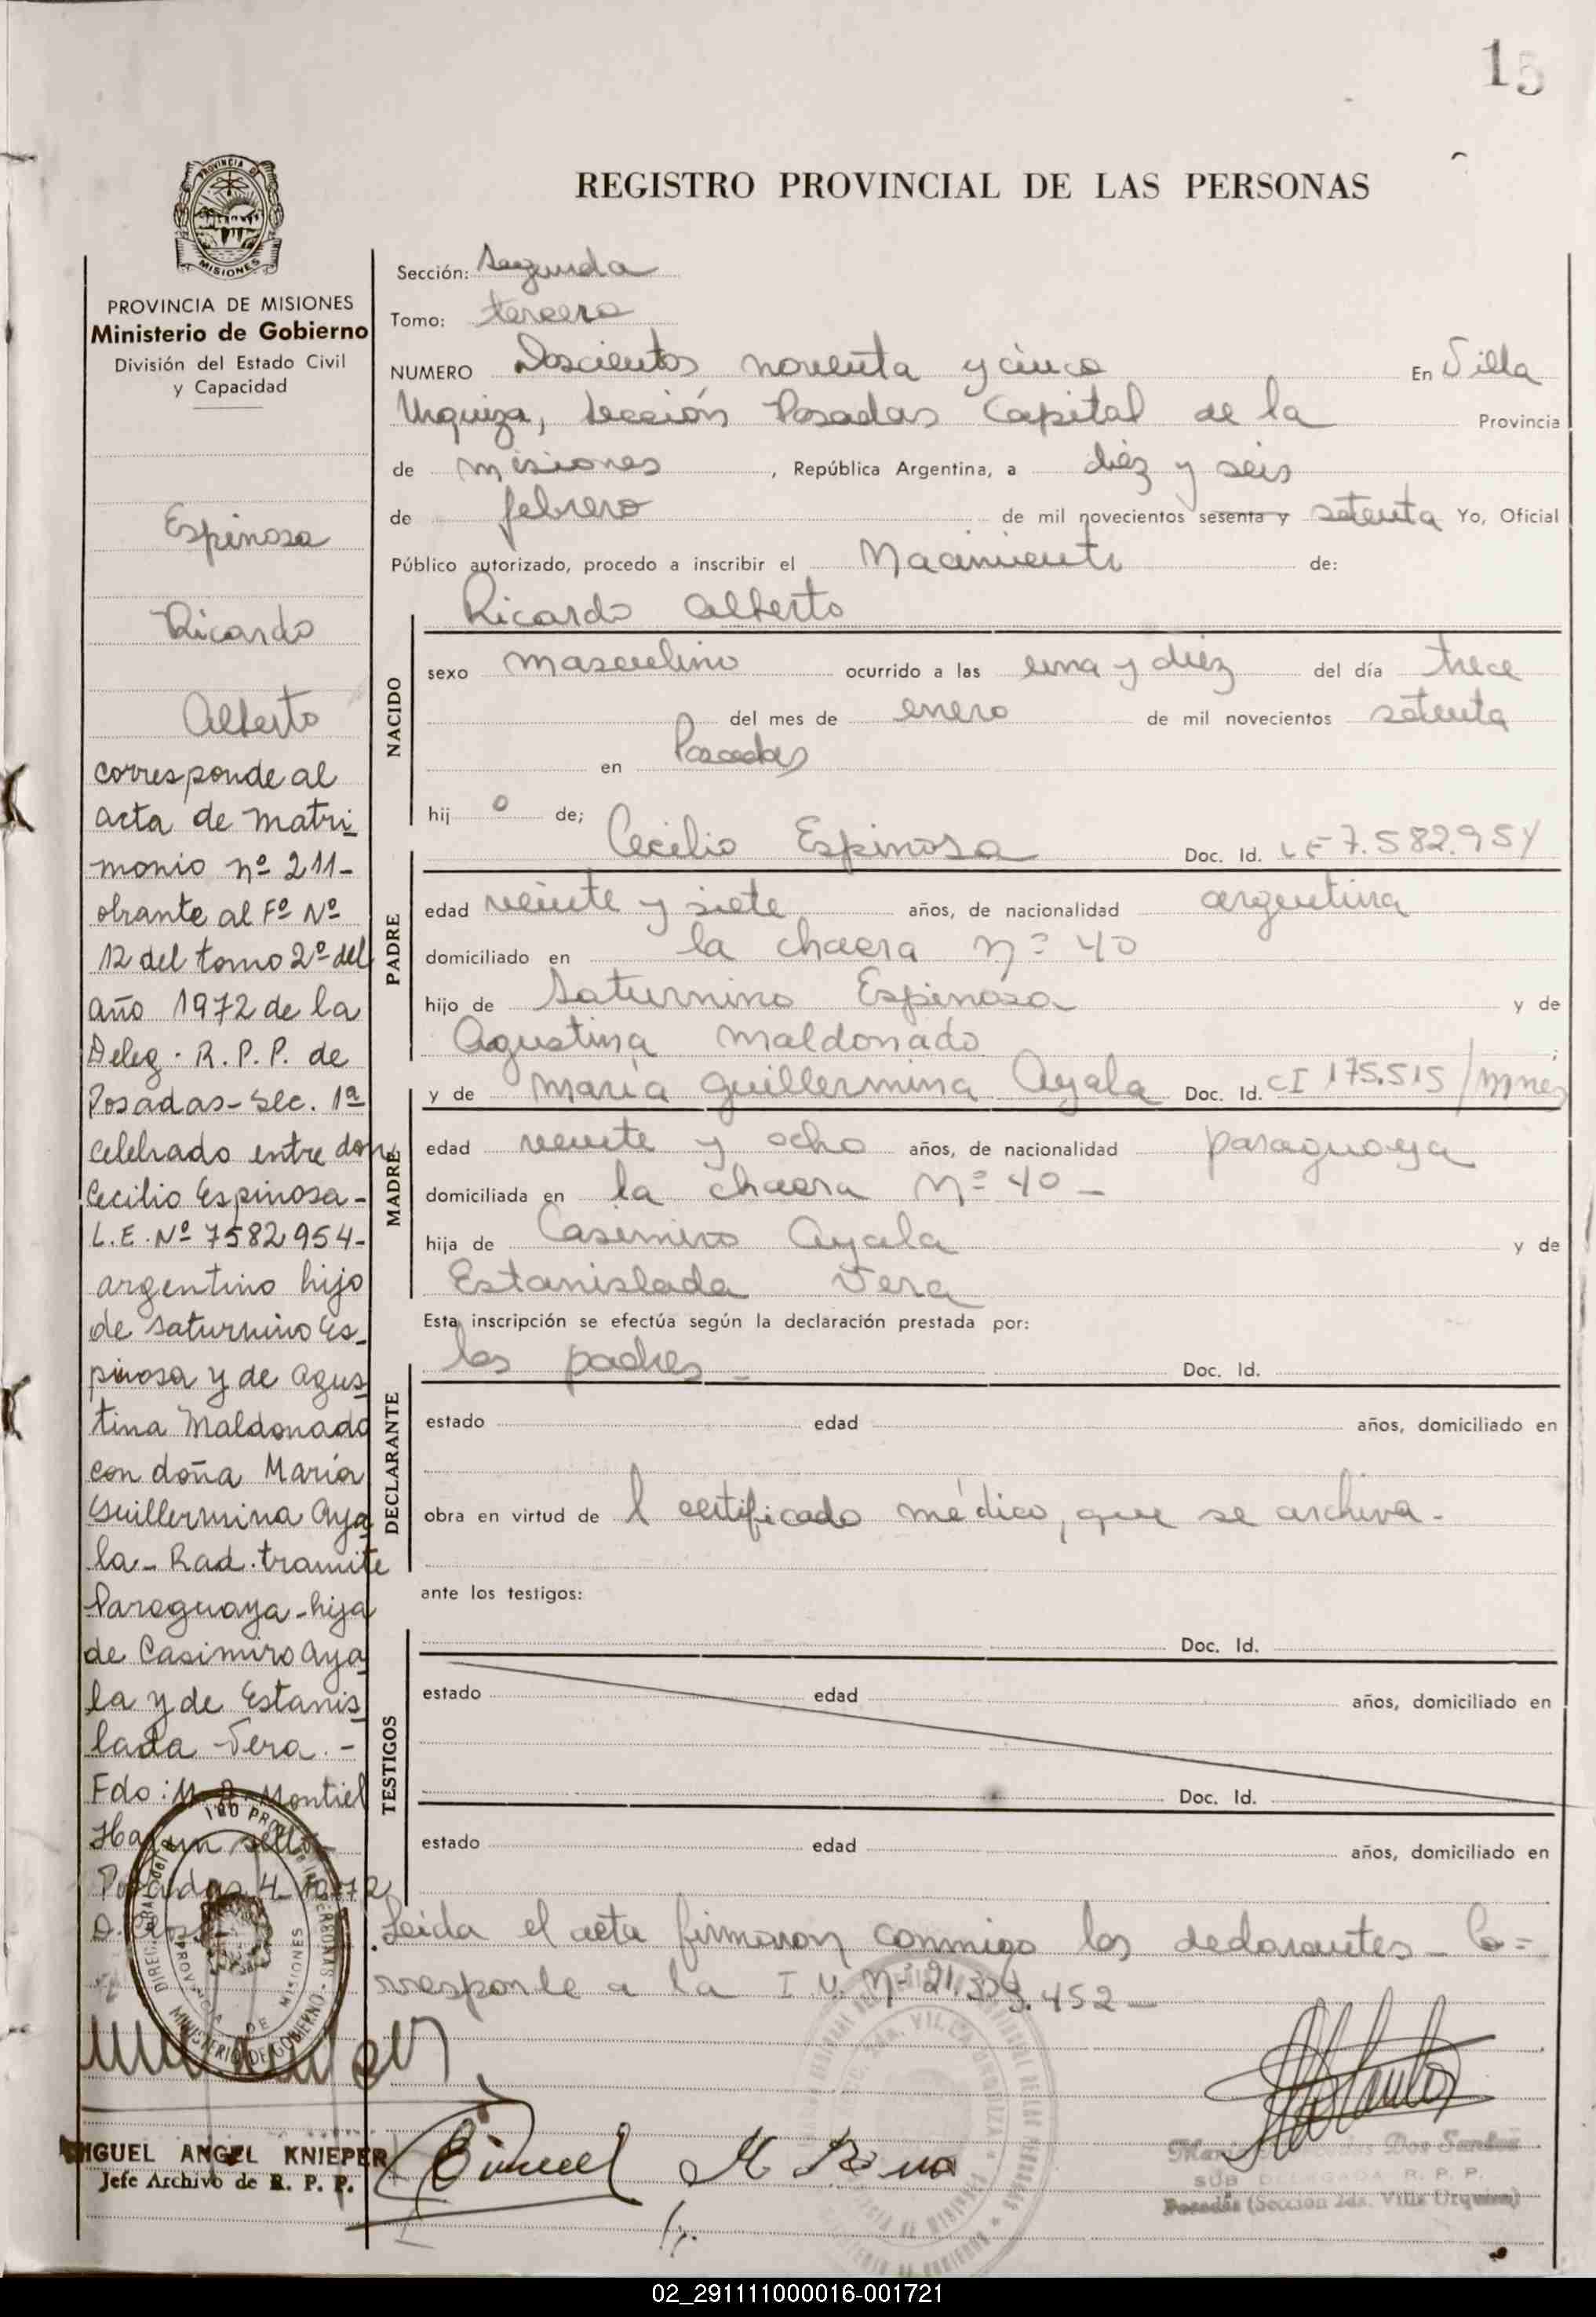 15
REGISTRO PROVINCIAL DE LAS PERSONAS
PROVINCIA DE MISIONES
Ministerio de Gobierno
División del Estado Civil
y Capacidad
Espinosa
Ricardo
Alberto
corresponde al
acta de matri
monio nº 211-
obrante al Fº Nº
12 del tomo 2º del
año 1972 de la
Deleg. R.P.P. de
Posadas - Sec. 1ª
celebrado entre don
Cecilio Espinosa -
L.E. Nº 7582954-
argentino hijo
de Saturnino Es-
pinosa y de Agus
tina Maldonado
con doña María
Guillermina Aya
la - Rad. tramite
Paraguaya - hija
de Casimiro Aya
la y de Estanis
lada Vera. -
Fdo: Montiel
Hay un sello
Posadas 4
MIGUEL ANGEL KNIEPER
Jefe Archivo de R. P. P.
Sección: Segunda
Tomo: tercero
NUMERO Doscientos noventa y cinco En Villa
Urquiza, Sección Posadas Capital de la Provincia
de Misiones , República Argentina, a diéz y seis
de febrero de mil novecientos sesenta y setenta Yo, Oficial
Público autorizado, procedo a inscribir el Nacimiento de:
Ricardo Alberto
NACIDO
sexo masculino ocurrido a las una y diéz del día trece
del mes de enero de mil novecientos setenta
en Posadas
hij o de;
Cecilio Espinosa Doc. Id. LE 7.582.954
PADRE
edad veinte y siete años, de nacionalidad argentina
domiciliado en la chacra nº 40
hijo de Saturnino Espinosa y de
Agustina Maldonado ;
y de María Guillermina Ayala Doc. Id. CI 175.515/mnes
MADRE
edad veinte y ocho años, de nacionalidad paraguaya
domiciliada en la chacra nº 40 -
hija de Casimiro Ayala y de
Estanislada Vera
Esta inscripción se efectúa según la declaración prestada por:
los padres - Doc. Id.
DECLARANTE
estado edad años, domiciliado en
obra en virtud de l certificado médico, que se archiva.-
ante los testigos:
Doc. Id.
TESTIGOS
estado edad años, domiciliado en
Doc. Id.
estado edad años, domiciliado en
Leida el acta firmaron conmigo los declarantes - Co=
rresponde a la I.U. Nº 21.339.452 -
Dos Santos
SUB DELEGADA R. P. P.
Posadas (Sección 2da. Villa Urquiza)
02_291111000016-001721